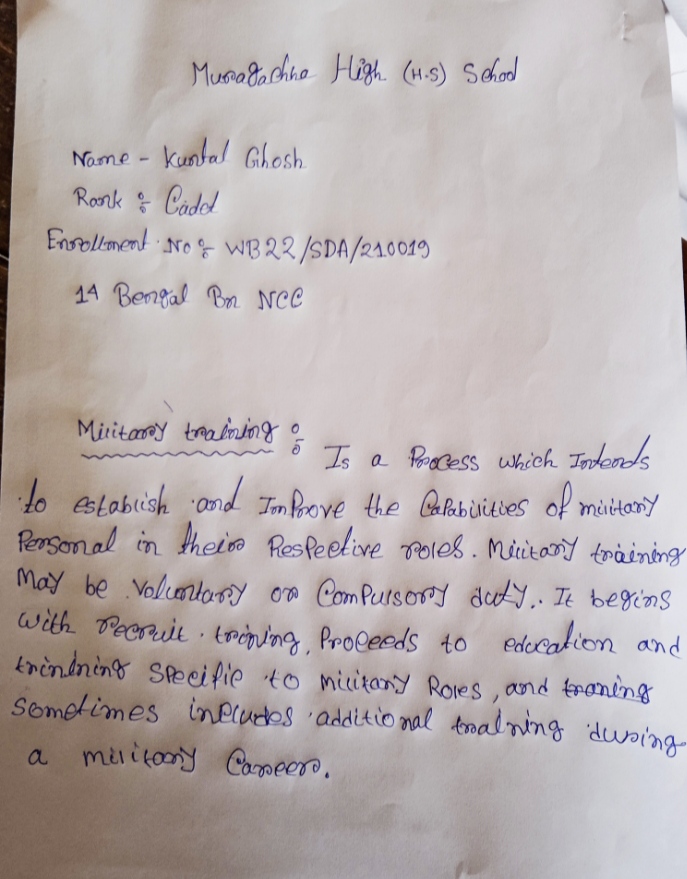 Muragachha High (H.S) School
Name - Kuntal Ghosh
Rank : Cadet
Enrollment No : WB22/SDA/210019
14 Bengal Bn NCC
Military training :
Is a Process which Intends
to establish and Improve the Capabilities of military
Personal in their Respective roles. Military training
May be Voluntary or Compulsory duty. It begins
with recruit training, Proceeds to education and
trindning Specific to military Roles, and traning
Sometimes includes additional training during
a military Career.